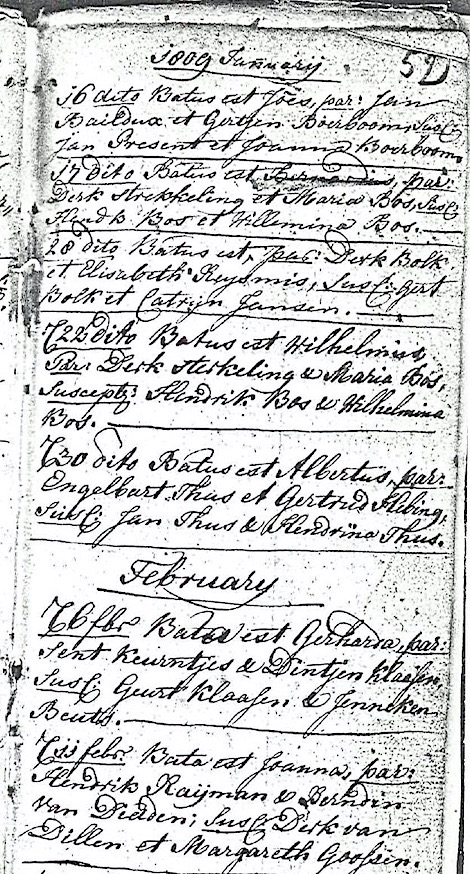 1809 January 52
16 dito Batus est Joës, par: Jan
Baildux et Gertjen Boerboom, Susc:
Jan Present et Joanna Boerboom
17 dito Batus est Hermanus, par:
Derk Strekkeling et Maria Bos, Susc:
Hendk Bos et Willemina Bos.
28 dito Batus est, par: Derk Bolk
et Elisabeth Reyemis, Susc: Gert
Bolk et Catrijn Jansen.
22 dito Batus est Wilhelmus
Par: Derk Sterkeling & Maria Bos,
Suscept: Hendrik Bos & Wilhelmina
Bos.
30 dito Batus est Albertus, par:
Engelbart Thus et Gertrud Hebing,
Susc: Jan Thus & Hendrina Thus.
February
6 fbr Bata est Gerharda, par:
Sent Keurntjes & Dintjen Klaasen,
Susc: Geurt Klaasen & Jenneken
Beuts.
11 febr. Bata est Joanna, par:
Hendrik Raijman & Berndin
van Dieden; Susc: Derk van
Dillen et Margareth Goossen.